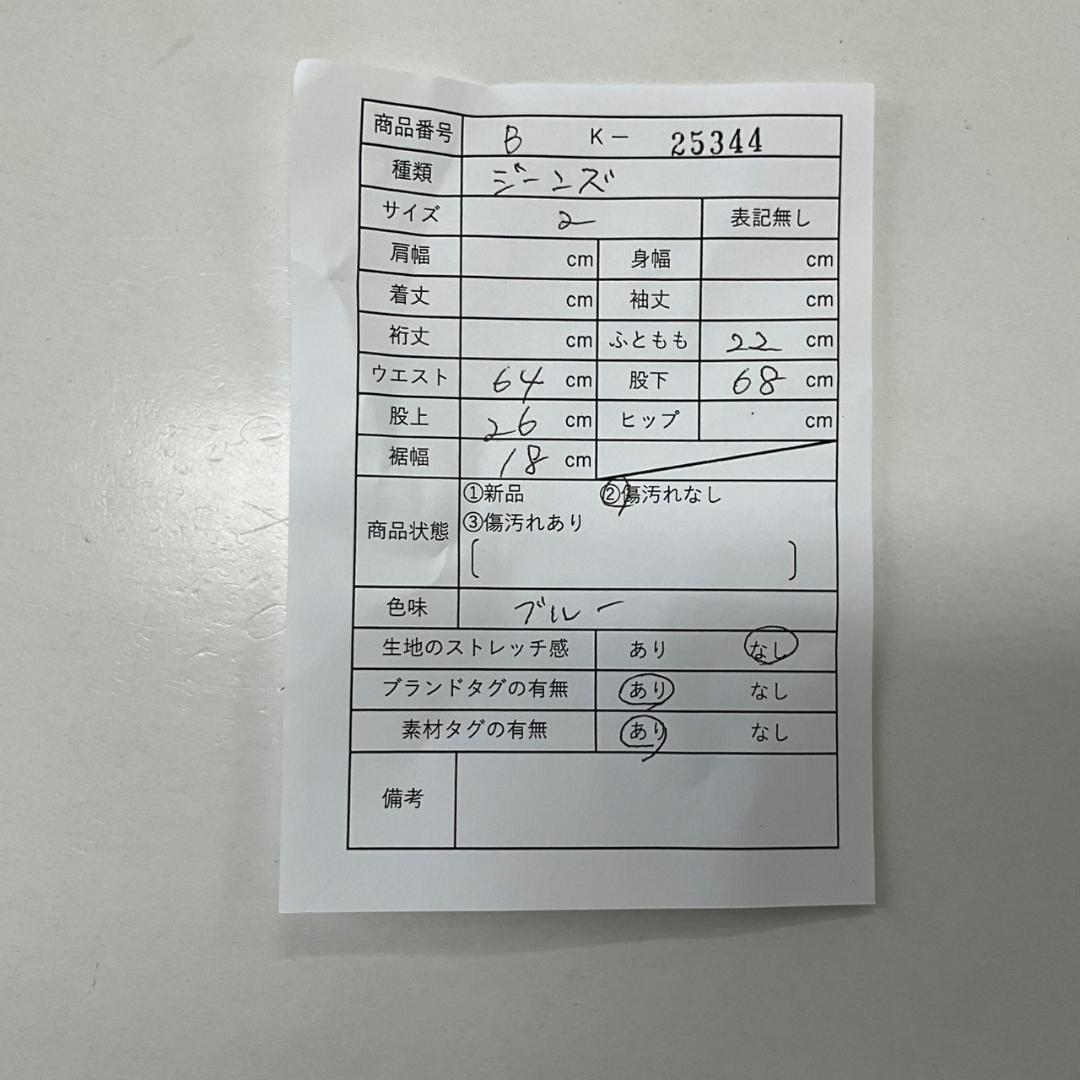 商品番号 B K- 25344
種類 ジーンズ
サイズ 2 表記無し
肩幅 cm 身幅 cm
着丈 cm 袖丈 cm
裄丈 cm ふともも 22 cm
ウエスト 64 cm 股下 68 cm
股上 26 cm ヒップ cm
裾幅 18 cm
①新品 ②傷汚れなし
商品状態 ③傷汚れあり
〔 〕
色味 ブルー
生地のストレッチ感 あり なし
ブランドタグの有無 あり なし
素材タグの有無 あり なし
備考